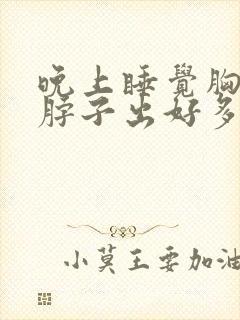 晚上睡覺胸
脖子出好多
小莫王要加油